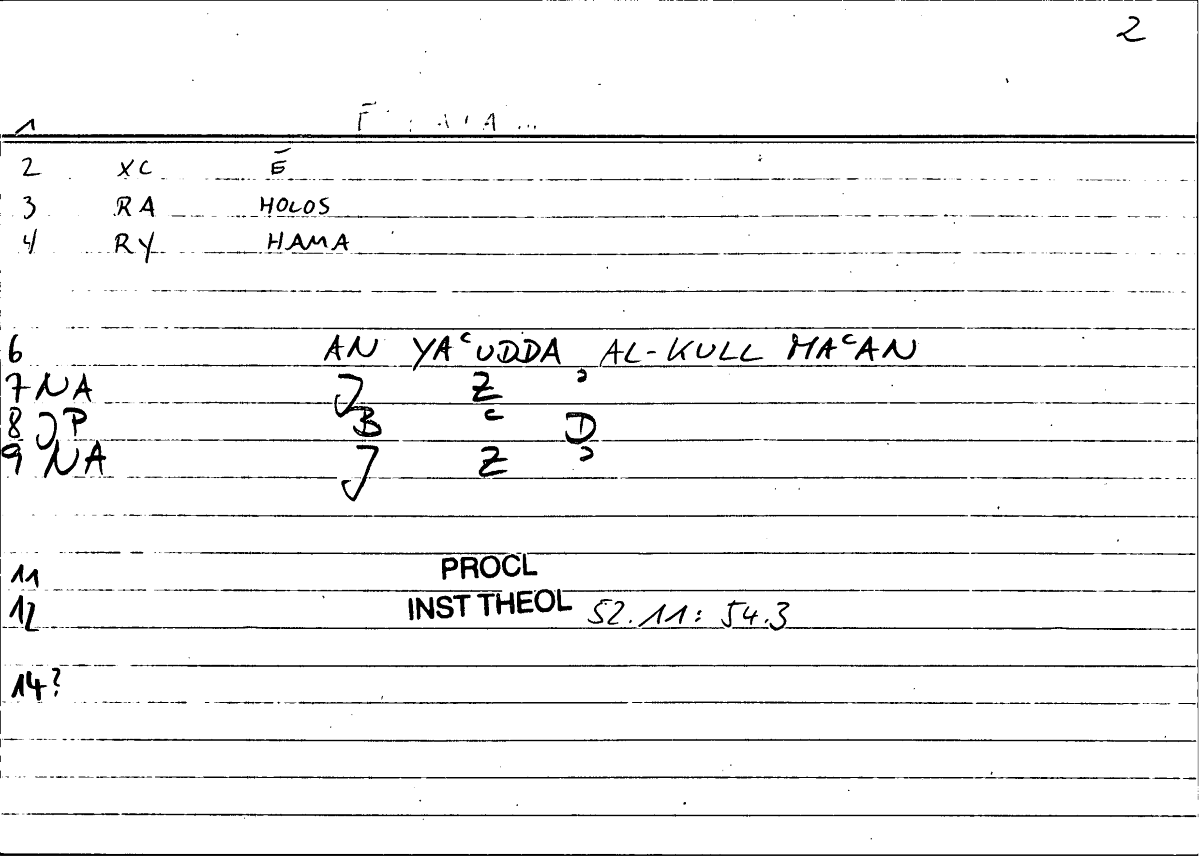 2
1
2 XC Ē
3 RA HOLOS
4 RY HAMA
6 AN YAᶜUDDA AL-KULL MAᶜAN
7 NA J Z ʾ
8 JP B ᶜ D
9 NA J Z ʾ
11 PROCL
12 INST THEOL 52.11: 54.3
14?